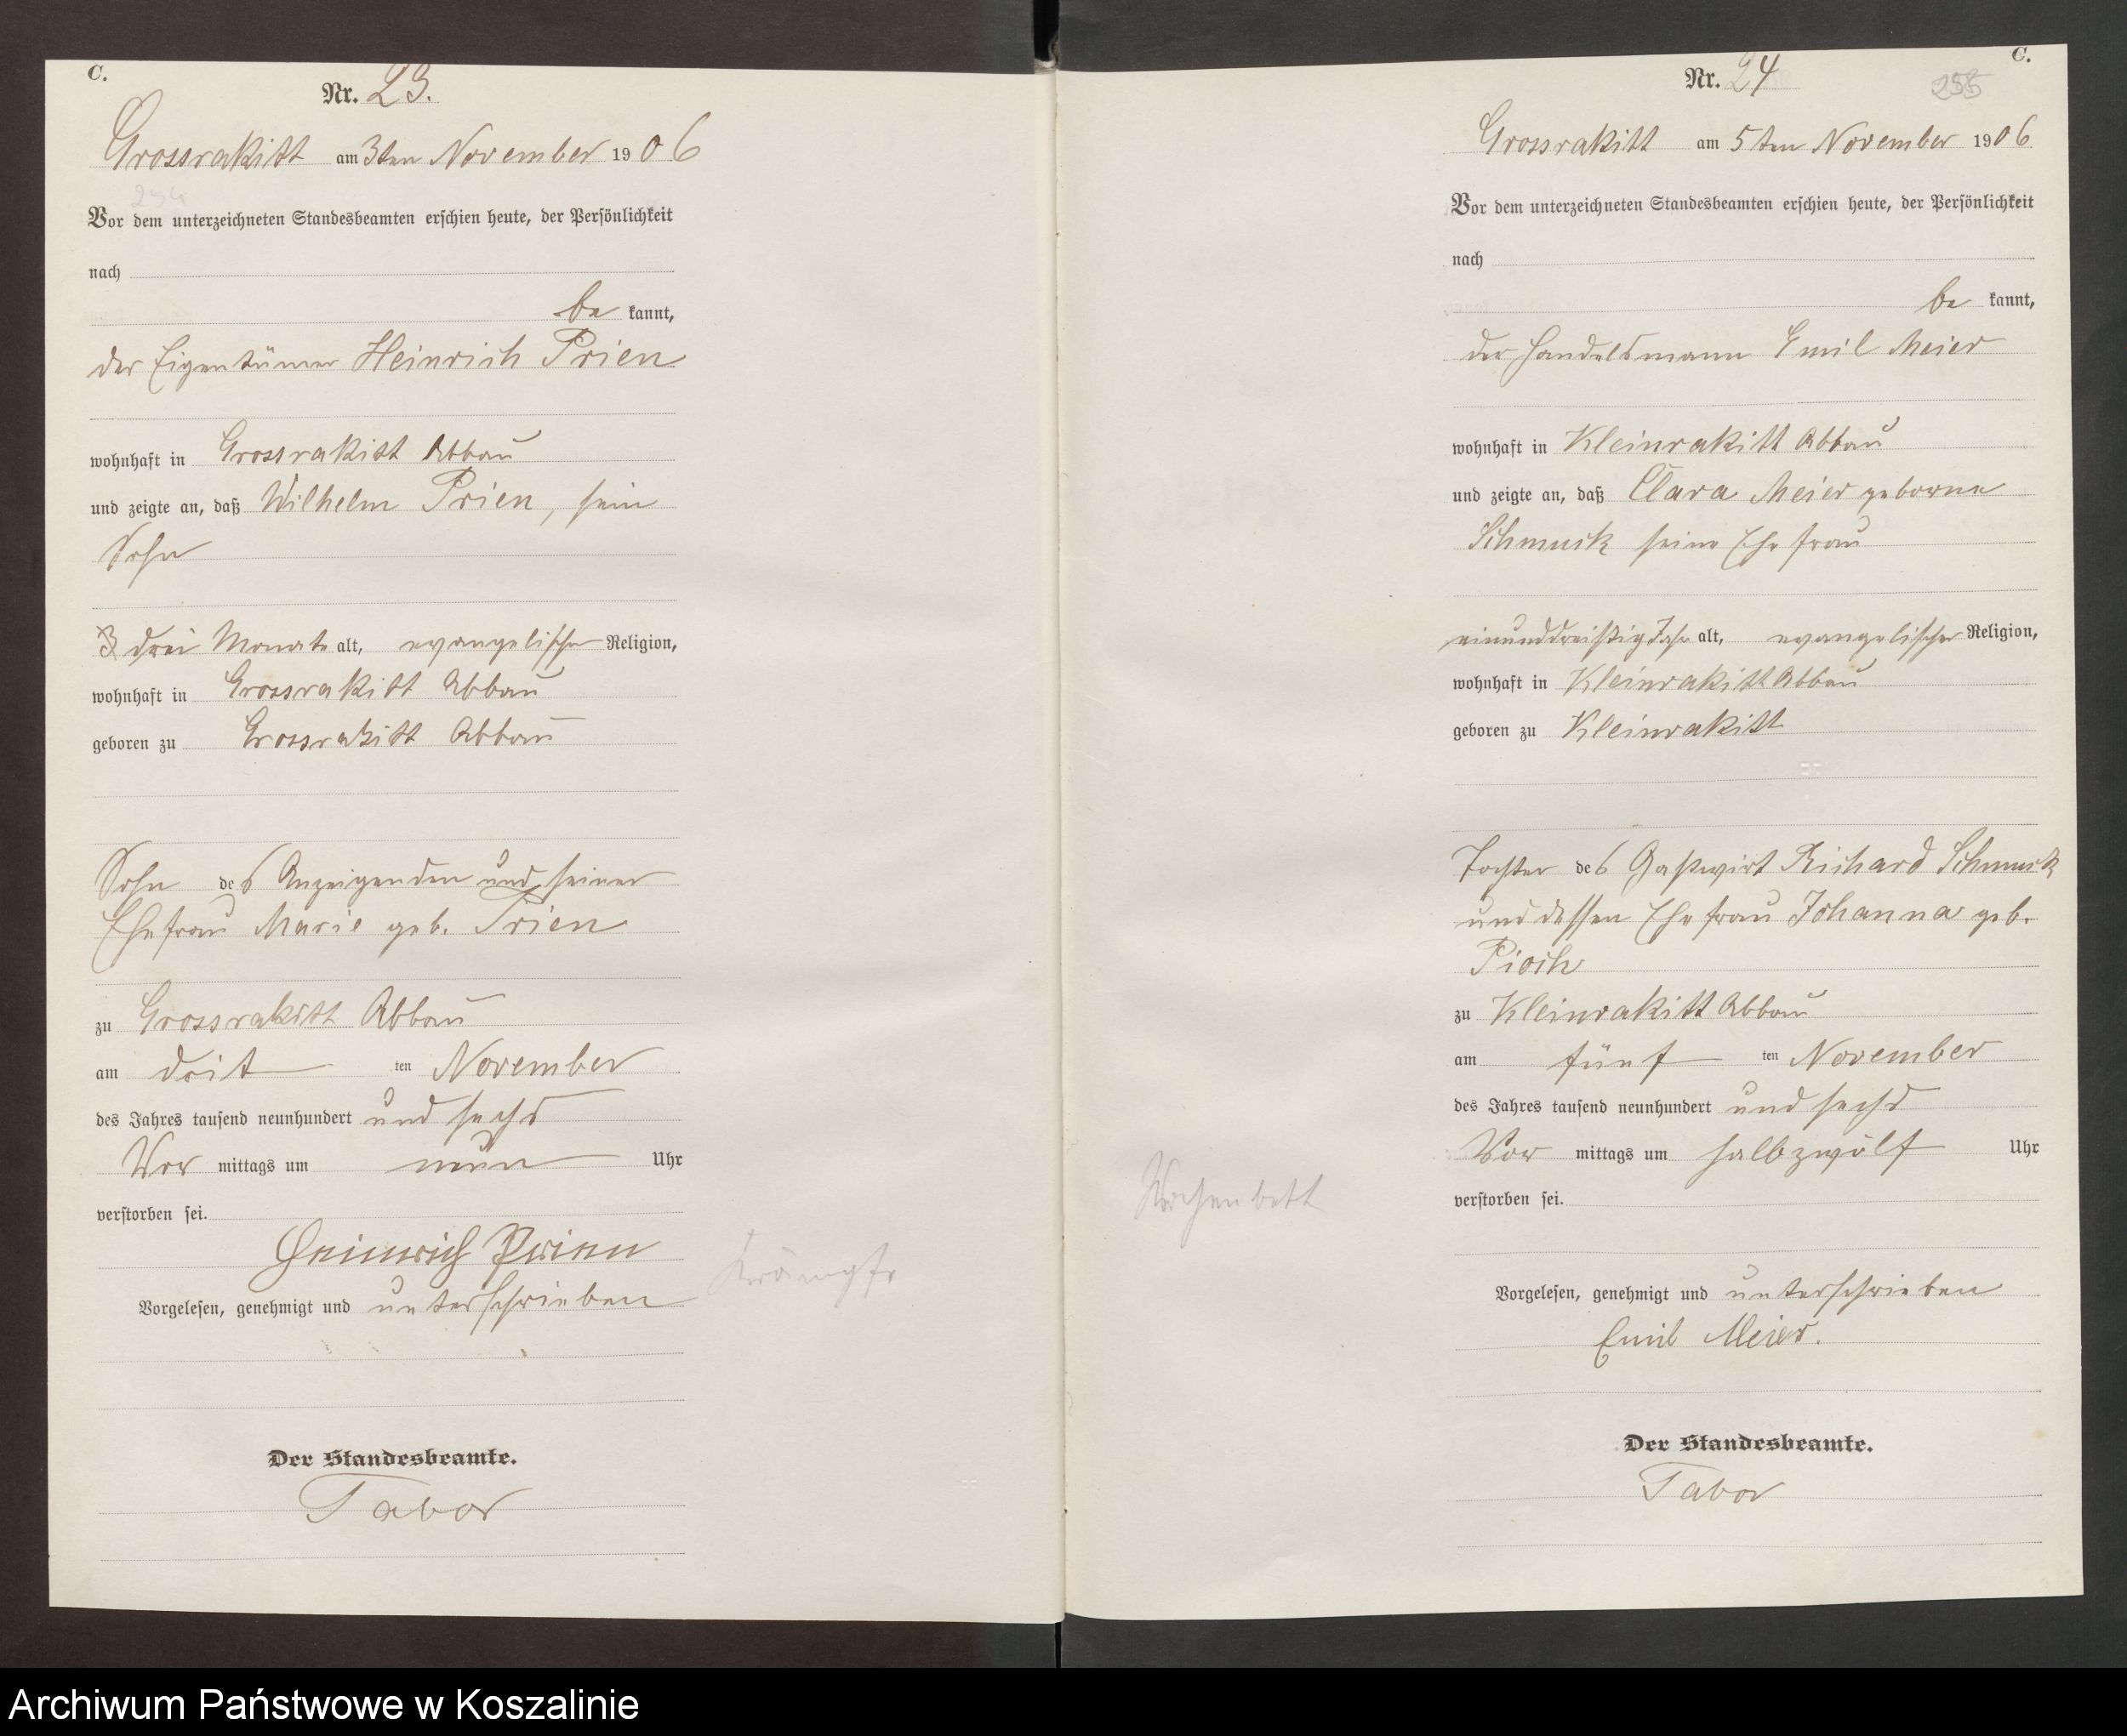 C.
Nr. 23.
Grossrakitt am 3ten November 1906
Vor dem unterzeichneten Standesbeamten erschien heute, der Persönlichkeit
nach
be kannt,
der Eigentümer Heinrich Prien
wohnhaft in Grossrakitt Abbau
und zeigte an, daß Wilhelm Prien, sein
Sohn
drei Monate alt, evangelischer Religion,
wohnhaft in Grossrakitt Abbau
geboren zu Grossrakitt Abbau
Sohn des Anzeigenden und seiner
Ehefrau Marie geb. Prien
zu Grossrakitt Abbau
am drit ten November
des Jahres tausend neunhundert und sechs
Vor mittags um neun Uhr
verstorben sei.
Heinrich Prien
Krämpfe
Vorgelesen, genehmigt und unterschrieben
Der Standesbeamte.
Tabor
C.
Nr. 24
255
Grossrakitt am 5ten November 1906
Vor dem unterzeichneten Standesbeamten erschien heute, der Persönlichkeit
nach
be kannt,
der Handelsmann Emil Meier
wohnhaft in Kleinrakitt Abbau
und zeigte an, daß Clara Meier geborne
Schmuck seine Ehefrau
einunddreißig Jahr alt, evangelischer Religion,
wohnhaft in Kleinrakitt Abbau
geboren zu Kleinrakitt
Tochter des Gaßwirt Richard Schmuck
und dessen Ehefrau Johanna geb.
Pioch
zu Kleinrakitt Abbau
am fünf ten November
des Jahres tausend neunhundert und sechs
Vor mittags um halbzwölf Uhr
Wochenbett
verstorben sei.
Vorgelesen, genehmigt und unterschrieben
Emil Meier.
Der Standesbeamte.
Tabor
Archiwum Państwowe w Koszalinie